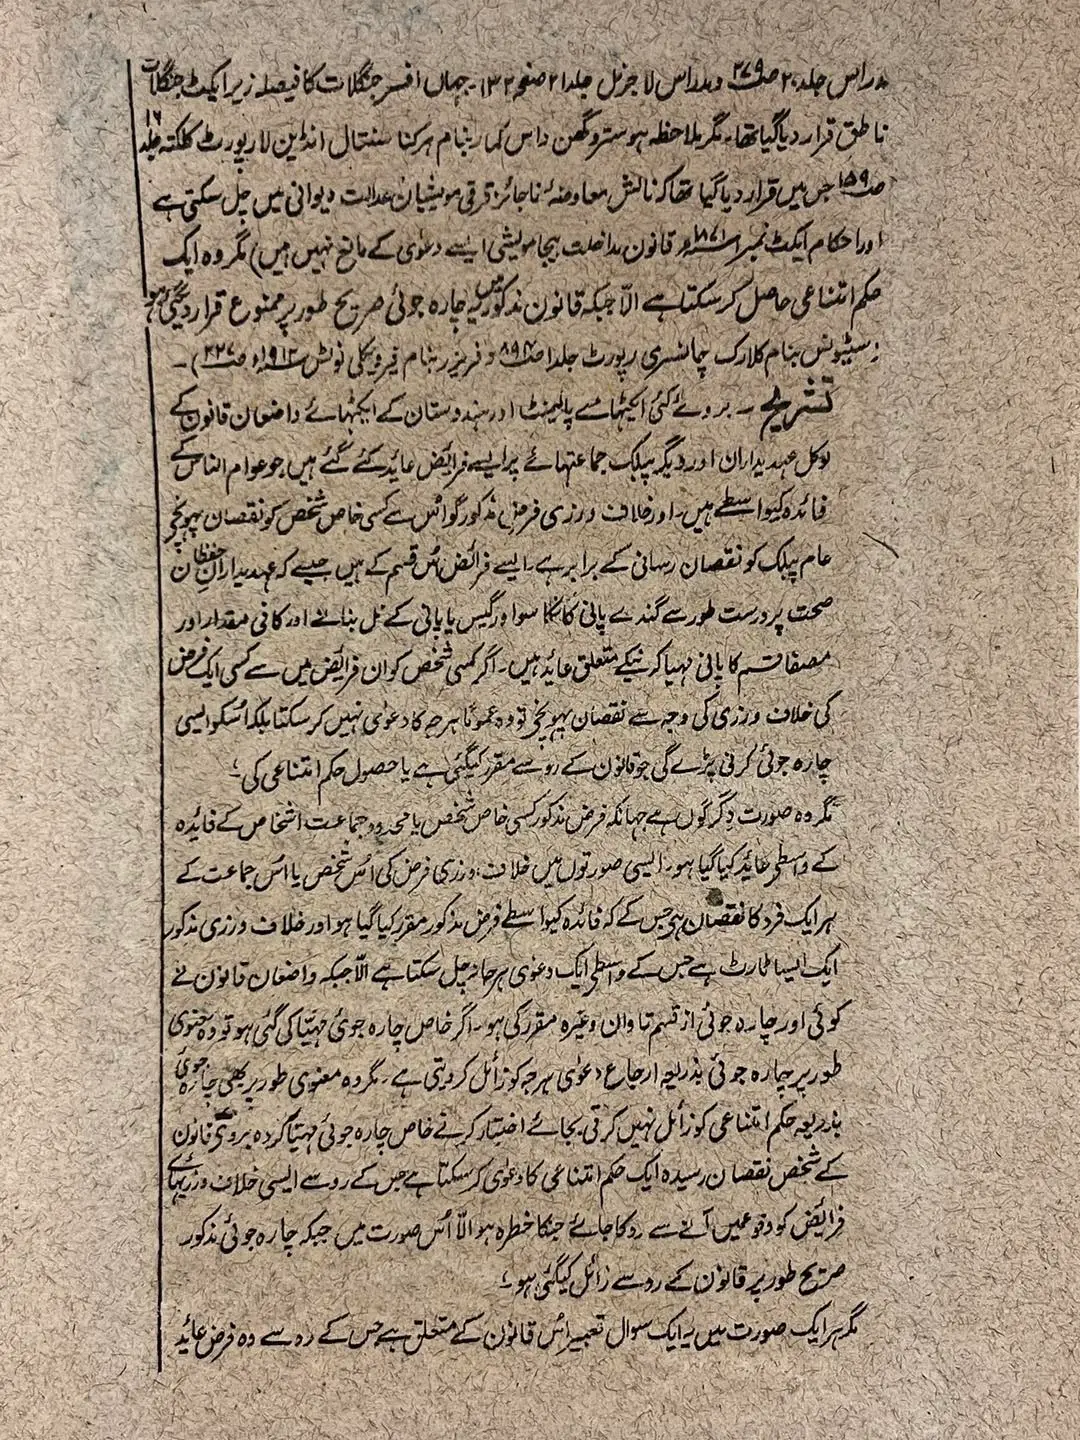 مدراس جلد ۲۰ ص۲۷۹ و مدراس لا جرنل جلد ۲۱ صفحہ ۱۳۲۔ جہاں افسر جنگلات کا فیصلہ زیر ایکٹ جنگلات
ناطق قرار دیا گیا تھا۔ مگر ملاحظہ ہو ستروگھن داس کمار بنام ہرکنا سنتال انڈین لا رپورٹ کلکتہ جلد ۱۶
ص۱۵۹ جس میں قرار دیا گیا تھا کہ نالش معاوضۂ ناجائز قرقی مویشیان عدالت دیوانی میں چل سکتی ہے
اور احکام ایکٹ نمبر ۱ ۱۸۷۱ء قانون مداخلت بیجا مویشی ایسے دعویٰ کے مانع نہیں ہیں) مگر وہ ایک
حکم امتناعی حاصل کر سکتا ہے الّا جبکہ قانون مذکور میں یہ چارہ جوئی صریح طور پر ممنوع قرار دیگئی ہو
(سٹیونس بنام کلارک چانسری رپورٹ جلد ۱ ص۸۹۴ و فریزر بنام فیر ویکلی نوٹس ۱۹۱۲ء ص۲۲۷)۔
تشریح ۔ بروئے کئی ایکٹہائے پارلیمنٹ اور ہندوستان کے ایکٹہائے واضعان قانون کے
لوکل عہدیداران اور دیگر پبلک جماعتہائے پر ایسے فرائض عائد کئے گئے ہیں جو عوام الناس کے
فائدہ کیواسطے ہیں۔ اور خلاف ورزی فرض مذکور گو اس سے کسی خاص شخص کو نقصان پہونچے
عام پبلک کو نقصان رسانی کے برابر ہے۔ ایسے فرائض اس قسم کے ہیں جیسے کہ عہدیداران حفظان
صحت پر درست طور سے گندے پانی کا نکاسو اور گیس یا پانی کے نل بنانے اور کافی مقدار اور
مصفا قسم کا پانی مہیا کرنیکے متعلق عاید ہیں۔ اگر کسی شخص کو ان فرائض میں سے کسی ایک فرض
کی خلاف ورزی کی وجہ سے نقصان پہونچے تو وہ عموماً ہرجہ کا دعویٰ نہیں کر سکتا بلکہ اُسکو ایسی
چارہ جوئی کرنی پڑے گی جو قانون کے رو سے مقرر کیگئی ہے یا حصول حکم امتناعی کی۔
مگر وہ صورت دگرگوں ہے جہاں کہ فرض مذکور کسی خاص شخص یا محدود جماعت اشخاص کے فائدہ
کے واسطے عائد کیا گیا ہو۔ ایسی صورتوں میں خلاف ورزی فرض کی اُس شخص یا اُس جماعت کے
ہر ایک فرد کا نقصان ہے جس کے کہ فائدہ کیواسطے فرض مذکور مقرر کیا گیا ہو اور خلاف ورزی مذکور
ایک ایسا ٹارٹ ہے جس کے واسطے ایک دعویٰ ہرجانہ چل سکتا ہے الّا جبکہ واضعان قانون نے
کوئی اور چارہ جوئی از قسم تاوان وغیرہ مقرر کی ہو۔ اگر خاص چارہ جوئی مہیّا کی گئی ہو تو وہ معنوی
طور پر چارہ جوئی بذریعہ ارجاع دعویٰ ہرجہ کو زائل کر دیتی ہے۔ مگر وہ معنوی طور پر بھی چارہ جوئی
بذریعہ حکم امتناعی کو زائل نہیں کرتی۔ بجائے اختیار کرنے خاص چارہ جوئی مہیّا کردہ بروئے قانون
کے شخص نقصان رسیدہ ایک حکم امتناعی کا دعویٰ کر سکتا ہے جس کے رو سے ایسی خلاف ورزیہائے
فرائض کو وقوع میں آنے سے روکا جائے جنکا خطرہ ہو الّا اُس صورت میں جبکہ چارہ جوئی مذکور
صریح طور پر قانون کے رو سے زائل کیگئی ہو۔
مگر ہر ایک صورت میں یہ ایک سوال تعبیر اُس قانون کے متعلق ہے جس کے رو سے وہ فرض عائد